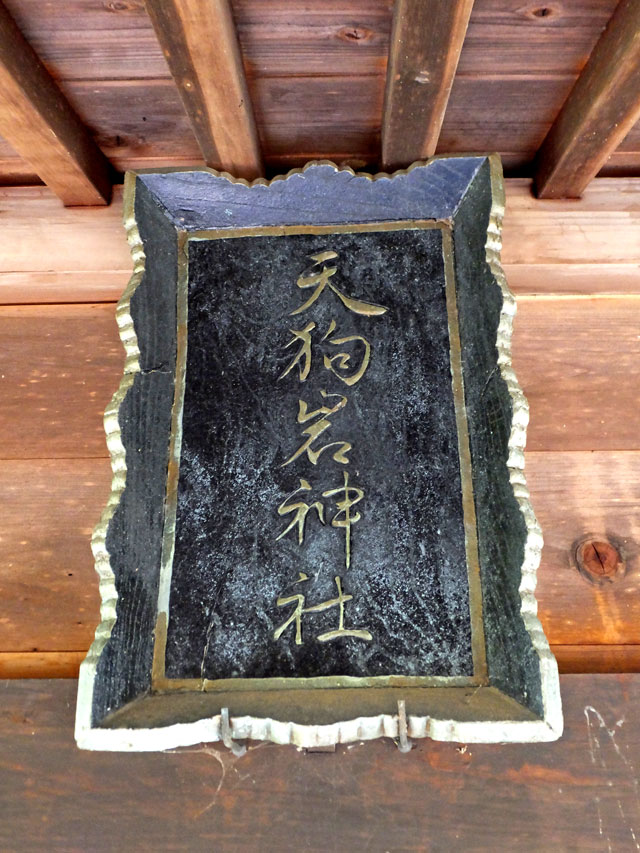 天狗岩神社